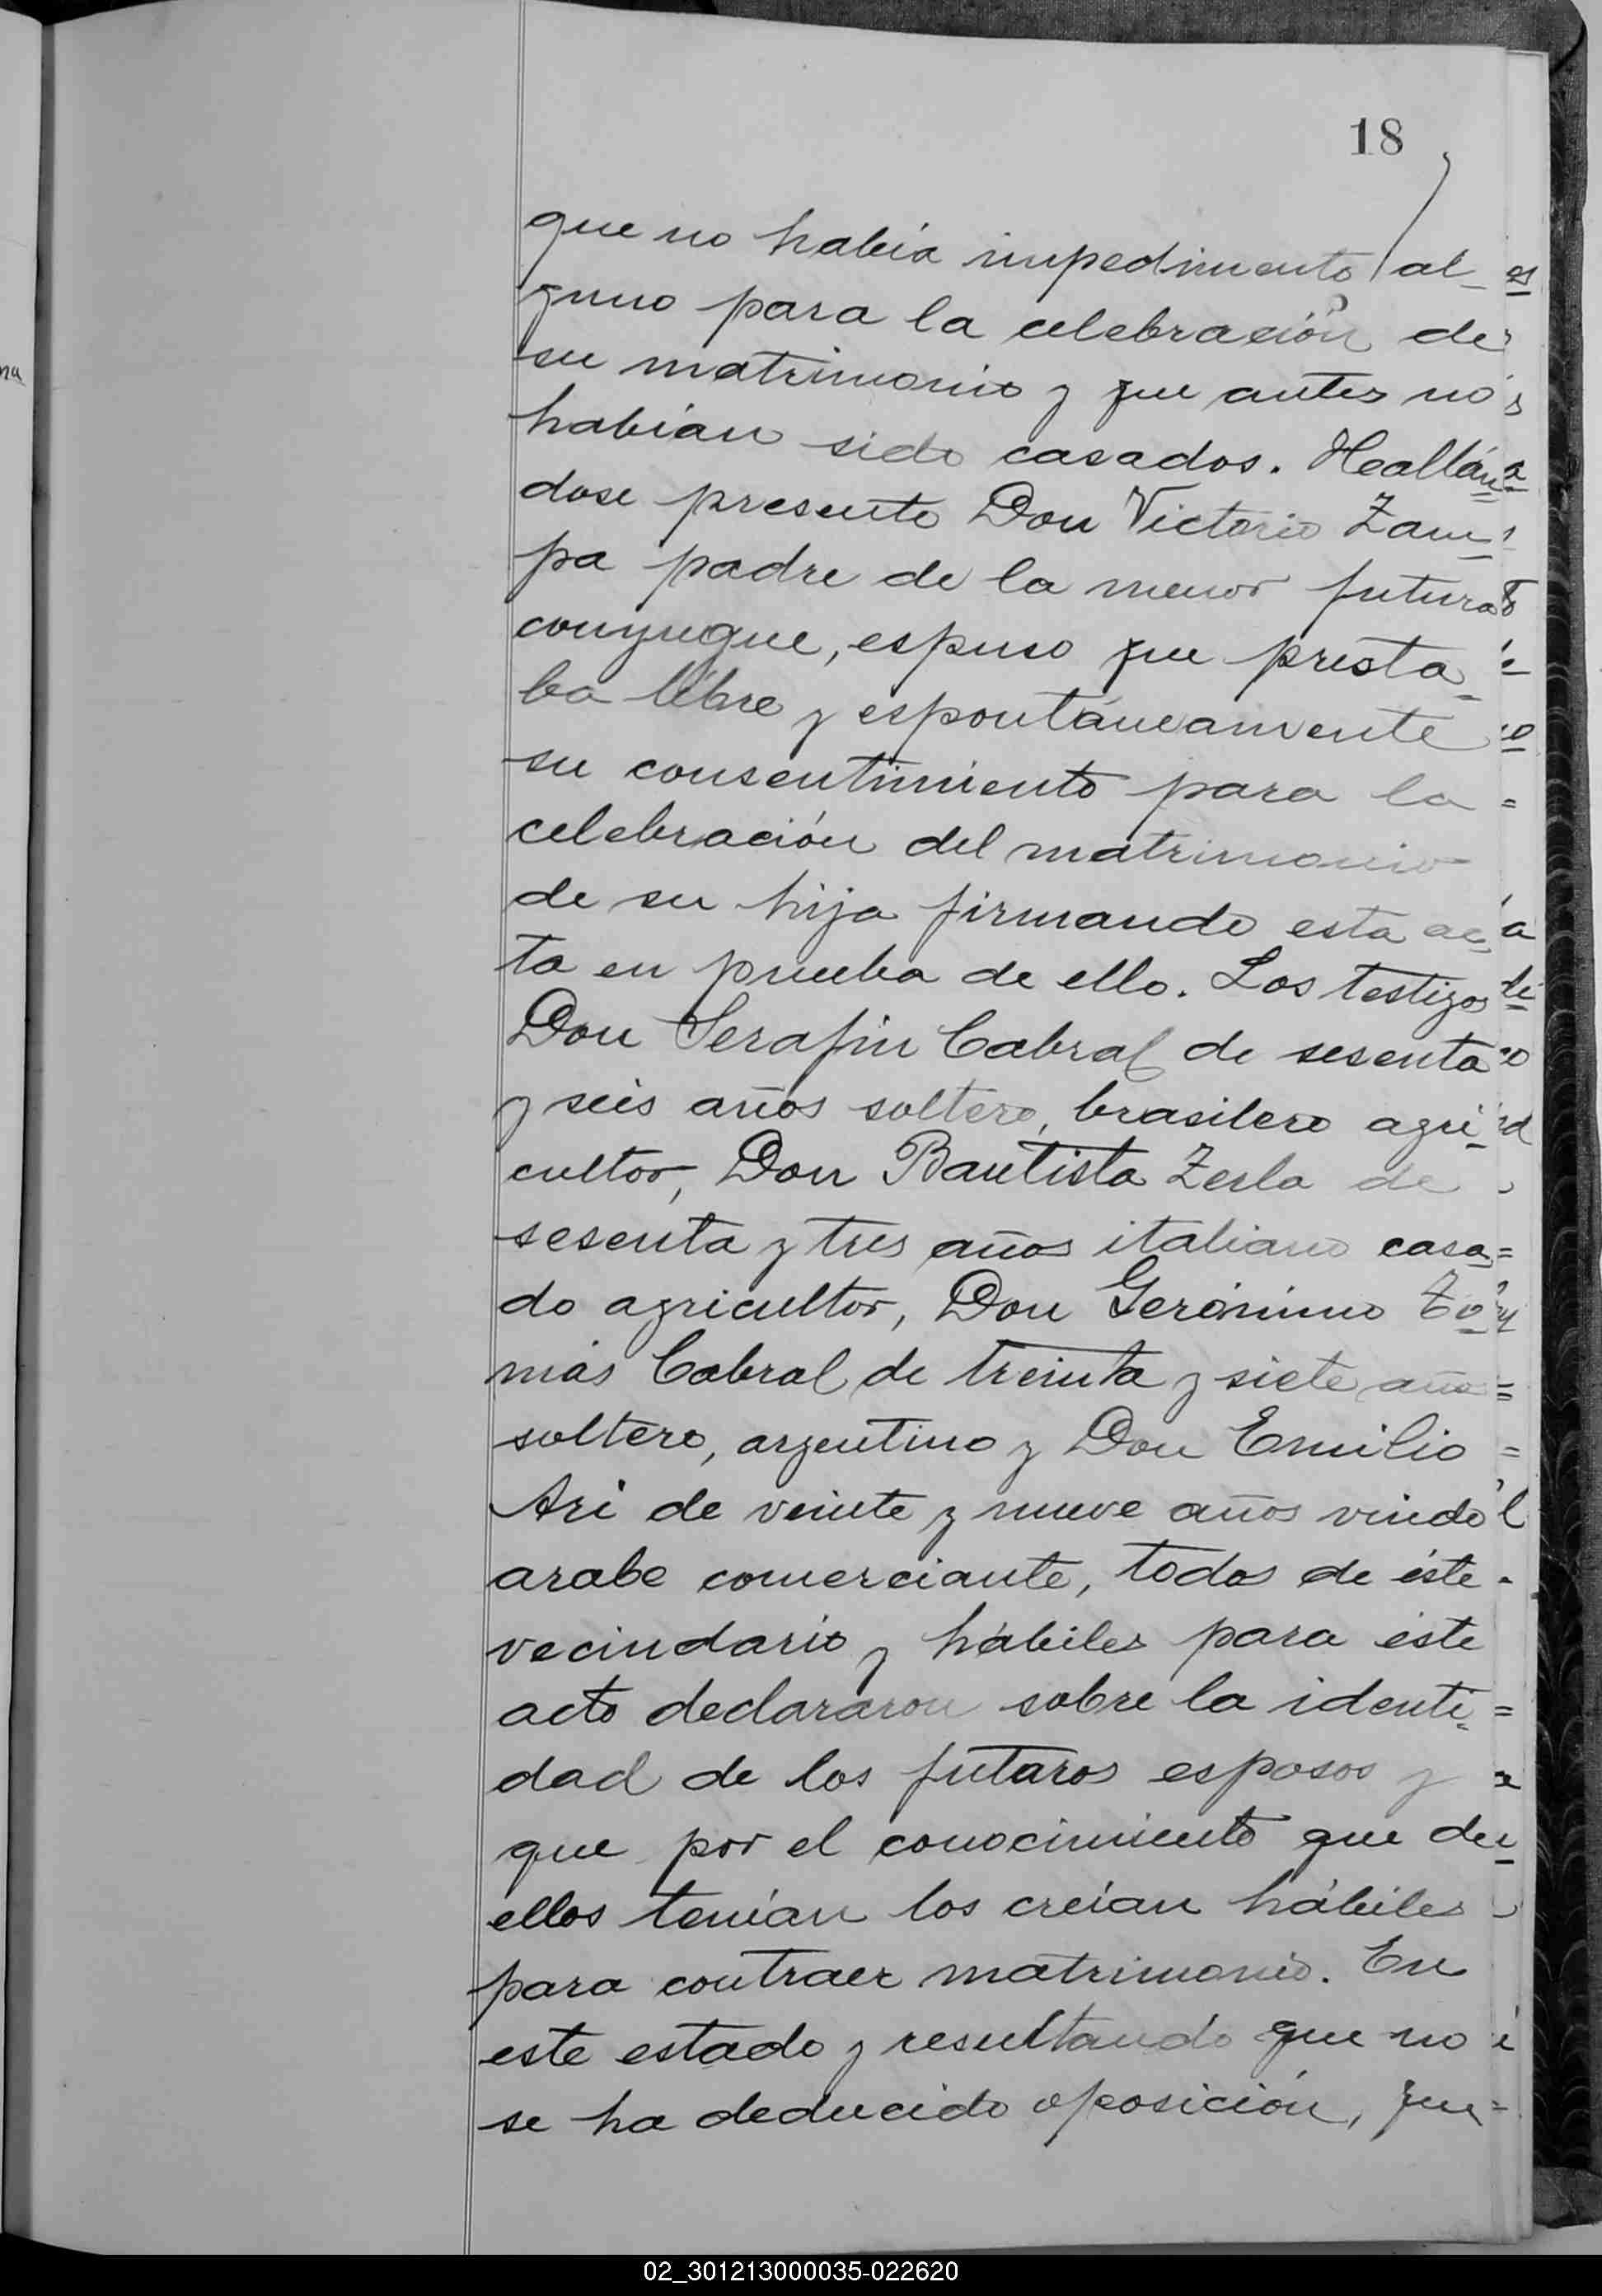 18
que no había impedimento al-
guno para la celebración de
su matrimonio y que antes no
habían sido casados. Hallán-
dose presente Don Victorio Zam-
pa padre de la menor futura
conyugue, espuso que presta-
ba libre y espontáneamente
su consentimiento para la
celebración del matrimonio
de su hija firmando esta ac-
ta en prueba de ello. Los testigos
Don Serafin Cabral de sesenta
y seis años soltero, brasilero agri-
cultor, Don Bautista Zerla de
sesenta y tres años italiano casa-
do agricultor, Don Gerónimo To-
más Cabral de treinta y siete años
soltero, argentino y Don Emilio
Ari de veinte y nueve años viudo
arabe comerciante, todos de éste
vecindario y hábiles para éste
acto declararon sobre la identi-
dad de los futuros esposos y
que por el conocimiento que de
ellos tenían los creían hábiles
para contraer matrimonio. En
este estado y resultando que no
se ha deducido oposición, que
02_301213000035-022620